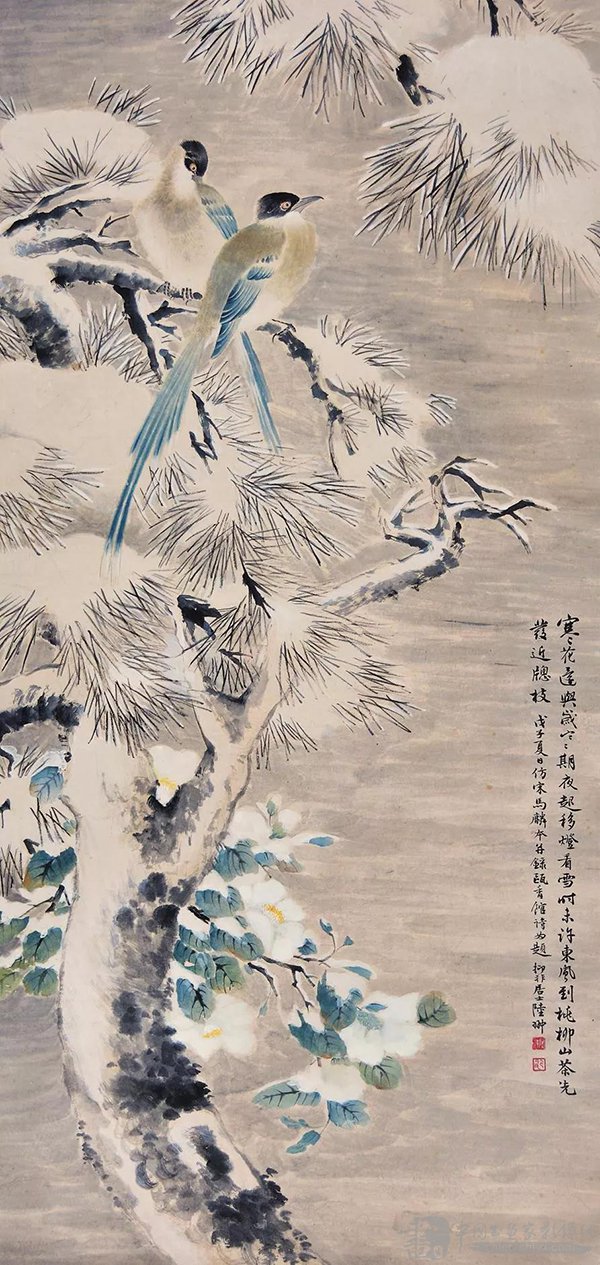 寒花遥與歲寒期夜起移燈看雪時未許東風到桃柳山茶先
發近牕枝 戊子夏日仿宋馬麟本并錄甌香館詩為題 抑非居士陸翀